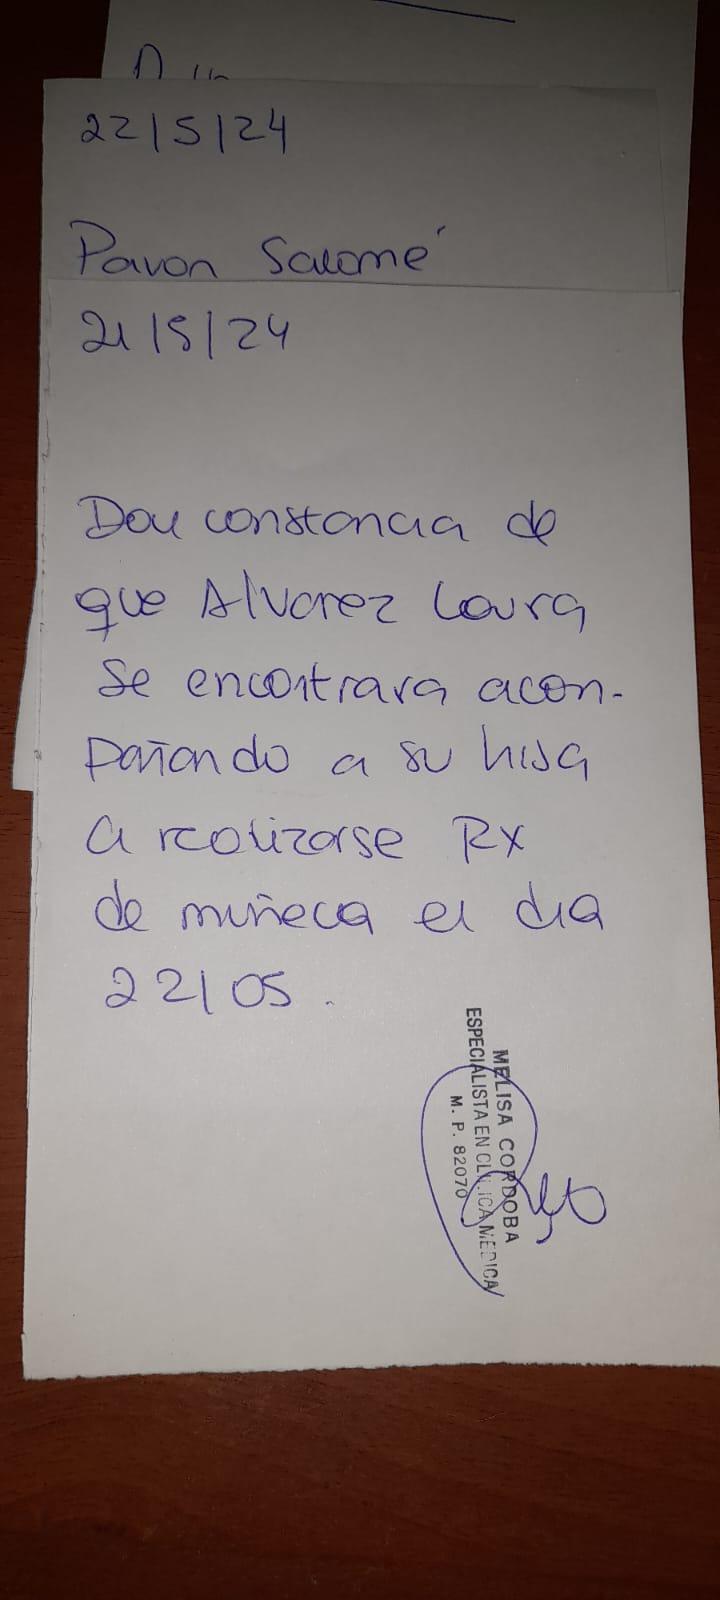 22/5/24
Pavon Salomé
21/5/24
Doy constancia de
que Alvarez Laura
se encontrara acon-
pañando a su hija
a realizarse Rx
de muñeca el dia
22/05.
MELISA CORDOBA
ESPECIALISTA EN CLINICA MEDICA
M. P. 82070